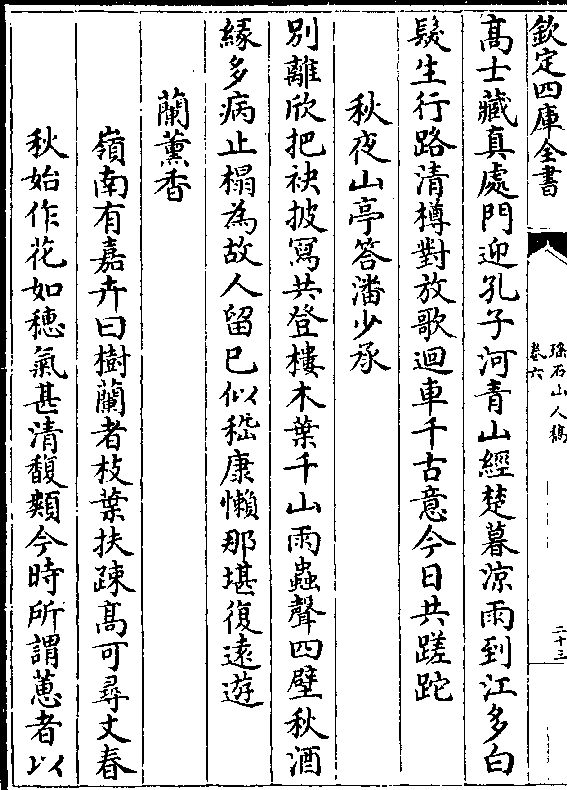 欽定四庫全書
瑤石山人稿
卷六
二十三
高士藏真處門迎孔子河青山經楚暮涼雨到江多白
髮生行路清樽對放歌迴車千古意今日共蹉跎
秋夜山亭答潘少承
別離欣把袂披寫共登樓木葉千山雨蟲聲四壁秋酒
緣多病止榻為故人留已似嵇康懶那堪復遠遊
蘭薰香
嶺南有嘉卉曰樹蘭者枝葉扶疎髙可尋丈春
秋始作花如穗氣甚清馥類今時所謂蕙者以